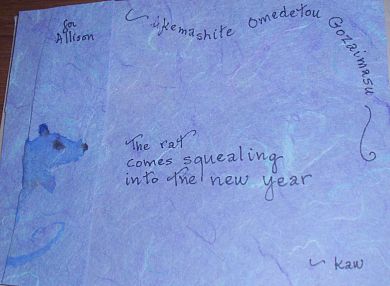 for
Allison
Akemashite Omedetou Gozaimasu
The rat
comes squealing
into the new year
~ kaw